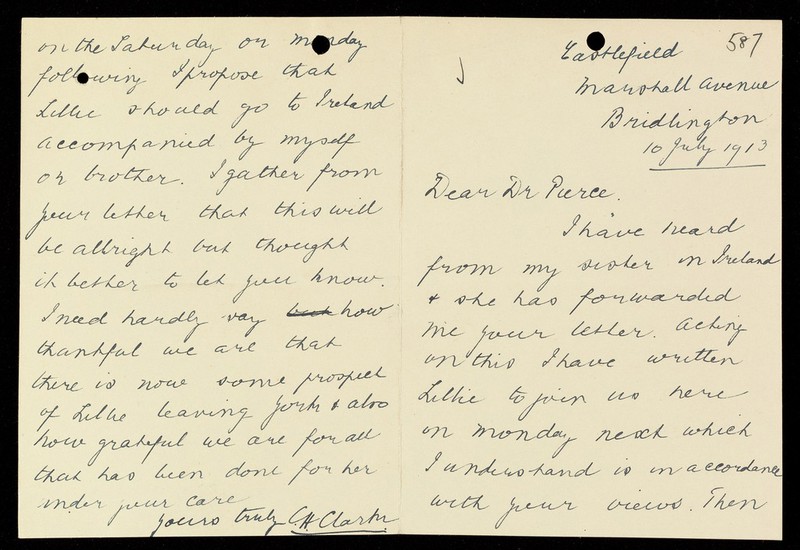 587
Eastlefield
Marshall Avenue
Bridlington
10 July 1913
Dear Dr Pierce.
I have heard
from my sister in Ireland
& she has forwarded
me your letter. Acting
on this I have written
Lillie to join us here
on Monday next which
I understand is in accordance
with your views. Then
on the Saturday or Monday
following I propose that
Lillie should go to Ireland
accompanied by myself
or brother. I gather from
your letter that this will
be allright but thought
it better to let you know.
I need hardly say but how
thankful we are that
there is now some prospect
of Lillie leaving York & also
how grateful we are for all
that has been done for her
under your care
yours truly C H Clarke